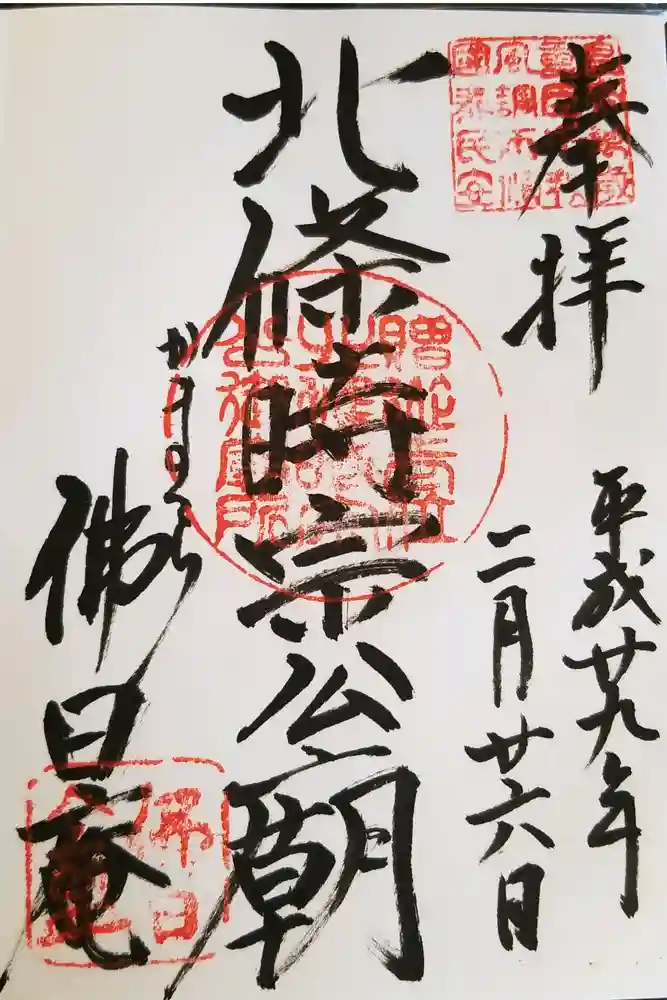 奉拝
平成廿九年
二月廿六日
北條時宗公廟
かまくら
佛日庵